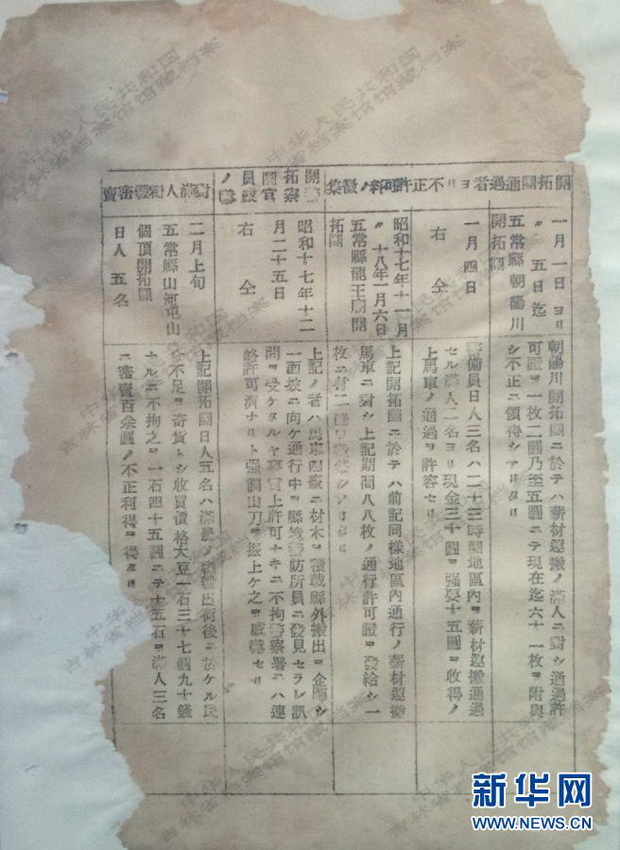 開拓團通過者ヨリ不正許可料ノ徵集
一月一日ヨリ
〃 五日迄
五常縣朝陽川
開拓團
朝陽川開拓團ニ於テハ薪材運搬ノ滿人ニ對シ通過許
可證ヲ一枚二圓乃至五圓ニテ現在迄六十一枚ヲ附與
シ不正ニ領得シアリタリ
一月四日
右仝
警備員日人三名ハ二十三時開地區內ヲ薪材運搬通過
セル滿人二名ヨリ現金三十圓ヲ强要十五圓ヲ收得ノ
上馬車ノ通過ヲ許容セリ
昭和十七年十一月
〃 十八年一月六日
五常縣龍王廟開
拓團
上記開拓團ニ於テハ前記同樣地區內通行ノ薪材運搬
馬車ニ對シ上記期間八八枚ノ通行許可證ヲ發給シ一
枚ニ
開拓團
員
警察官
ノ
昭和十七年十二
月二十五日
右仝
上記ノ者ハ馬車四臺ニ材木ヲ積載縣外搬出ヲ企圖シ
一面坡ニ向ケ通行中ヲ縣警防所員ニ發見セラレ訊
問ヲ受ケタルヤ事實上許可ナキニ不拘警察署ニハ連
絡許可濟ナリト强調山刀ヲ振上ケ之ヲ威脅セリ
對滿人糧穀密賣
二月上旬
五常縣山河屯山
個頂開拓團
日人五名
上記開拓團日人五名ハ滿農ノ出荷後ニ於ケル民
食不足ヲ奇貨トシ收買價格大豆一石三十七圓九十錢
ナルニ不拘之ヲ一石四十五圓ニテ十五石ヲ滿人三名
ニ密賣百余圓ノ不正利得ヲ得タリ
中华人民共和国
吉林省档案馆馆藏档案
新华网
WWW.NEWS.CN